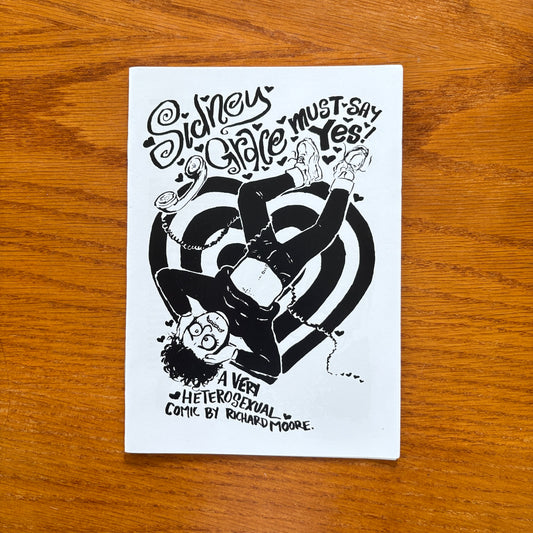 Sidney
Grace
MUST SAY
Yes!
A VERY
HETEROSEXUAL
COMIC BY RICHARD MOORE.